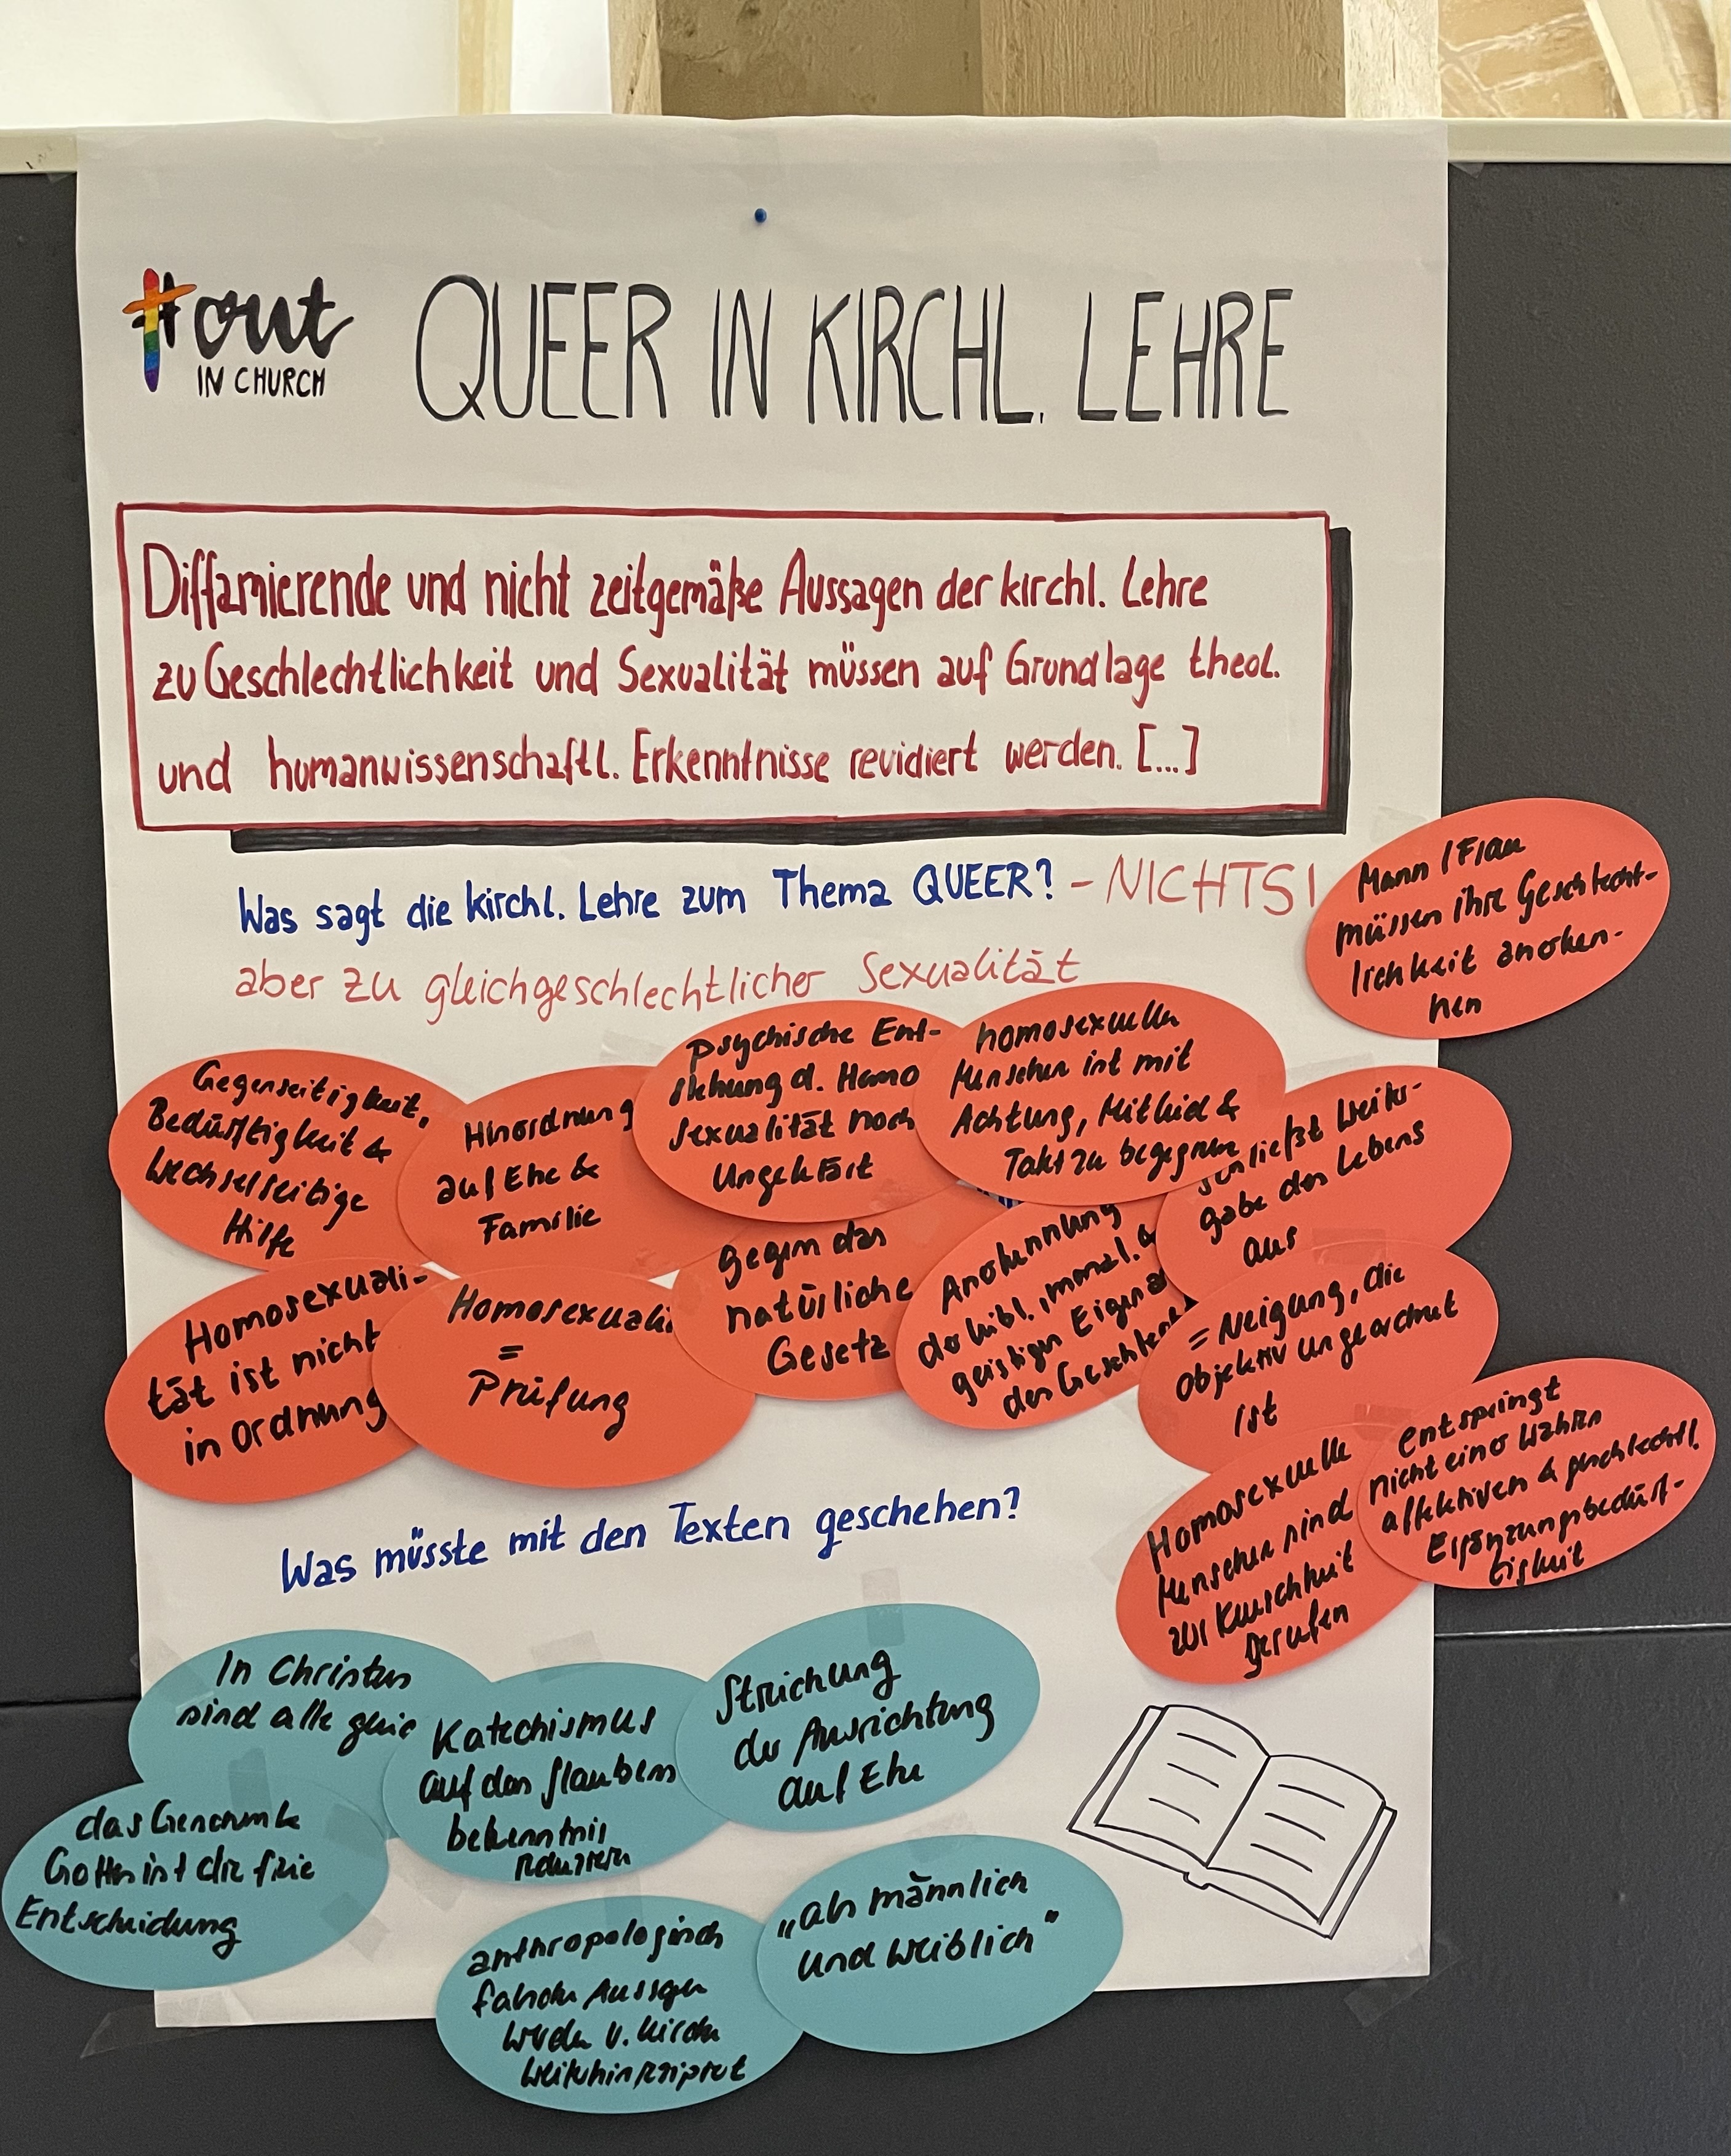 #out
IN CHURCH
QUEER IN KIRCHL. LEHRE
Diffamierende und nicht zeitgemäße Aussagen der kirchl. Lehre
zu Geschlechtlichkeit und Sexualität müssen auf Grundlage theol.
und humanwissenschaftl. Erkenntnisse revidiert werden. [...]
Was sagt die kirchl. Lehre zum Thema QUEER? - NICHTS!
aber zu gleichgeschlechtlicher Sexualität
Mann / Frau
müssen ihre Geschlecht-
lichkeit anerken-
nen
Gegenseitigkeit,
Bedürftigkeit &
wechselseitige
Hilfe
Hinordnung
auf Ehe &
Familie
Psychische Ent-
stehung d. Homo
sexualität noch
Ungeklärt
homosexuellen
Menschen ist mit
Achtung, Mitleid &
Takt zu begegnen
schließt Weiter-
gabe des Lebens
aus
Homosexuali-
tät ist nicht
in Ordnung
Homosexuali
=
Prüfung
gegen das
natürliche
Gesetz
Anerkennung
der leibl., moral. &
geistigen
der Geschlecht
= Neigung, die
Objektiv ungeordnet
ist
Homosexuelle
Menschen sind
zur Keuschheit
gerufen
entspringt
nicht einer wahren
affektiven & geschlechtl.
Ergänzungsbedürf-
tigkeit
Was müsste mit den Texten geschehen?
In Christus
sind alle
Katechismus
auf das Glaubens
bekenntnis
reduzieren
Streichung
der Ausrichtung
auf Ehe
das Geschenk
Gottes ist die freie
Entscheidung
anthropologisch
falsche Aussagen
werden v. Kirche
weiterhin
„als männlich
und weiblich"